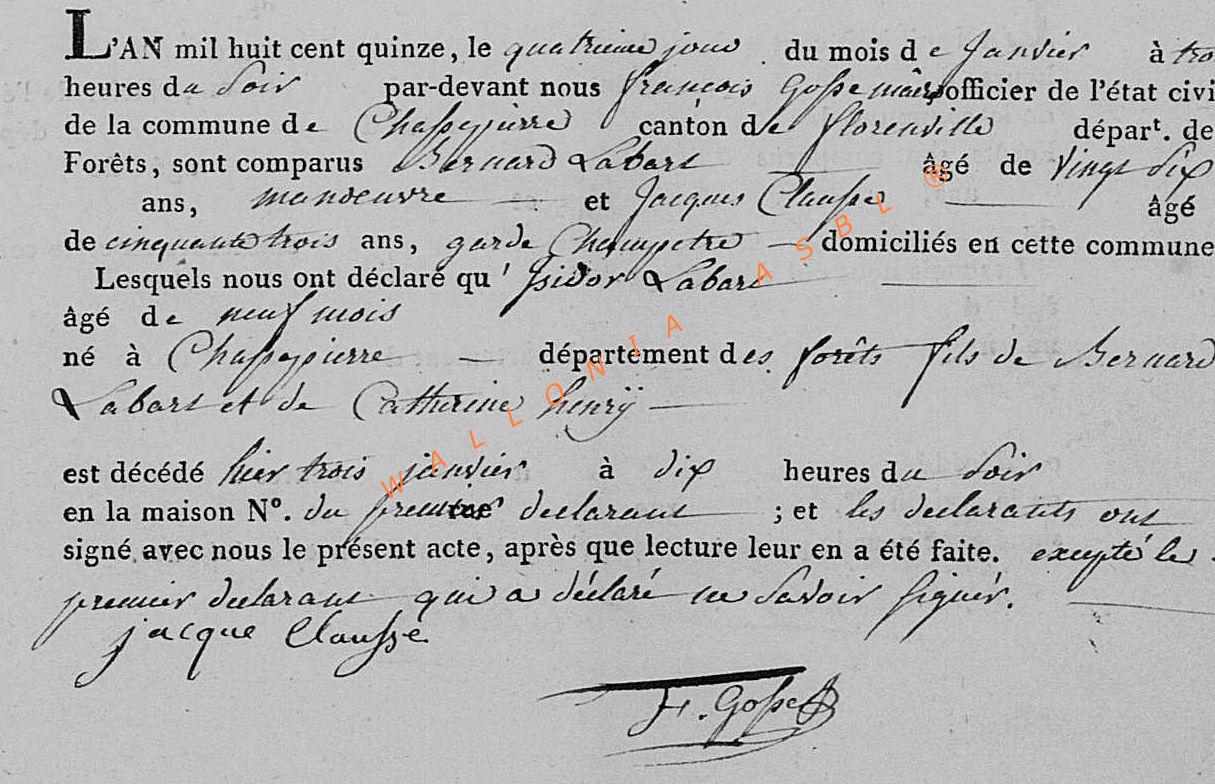 L'AN mil huit cent quinze, le quatrieme jour du mois de Janvier à tro
heures du Soir par-devant nous françois Gosse maire officier de l'état civi
de la commune de Chassepierre canton de florenville départ. de
Forêts, sont comparus Bernard Labart âgé de Vingt Six
ans, manoeuvre et Jacques Clausse âgé
de cinquante trois ans, garde Champetre domiciliés en cette commune
Lesquels nous ont déclaré qu' Isidor Labart
âgé de neuf mois
né à Chassepierre département des forêts fils de Bernard
Labart et de Catherine henrÿ
est décédé hier trois janvier à dix heures du Soir
en la maison N°. du premier declarant ; et les declarants ont
signé avec nous le présent acte, après que lecture leur en a été faite. excepté le
premier declarant qui a déclaré ne Savoir signér.
jacque Clausse
F. Gosse
WALLONIA ASBL ®